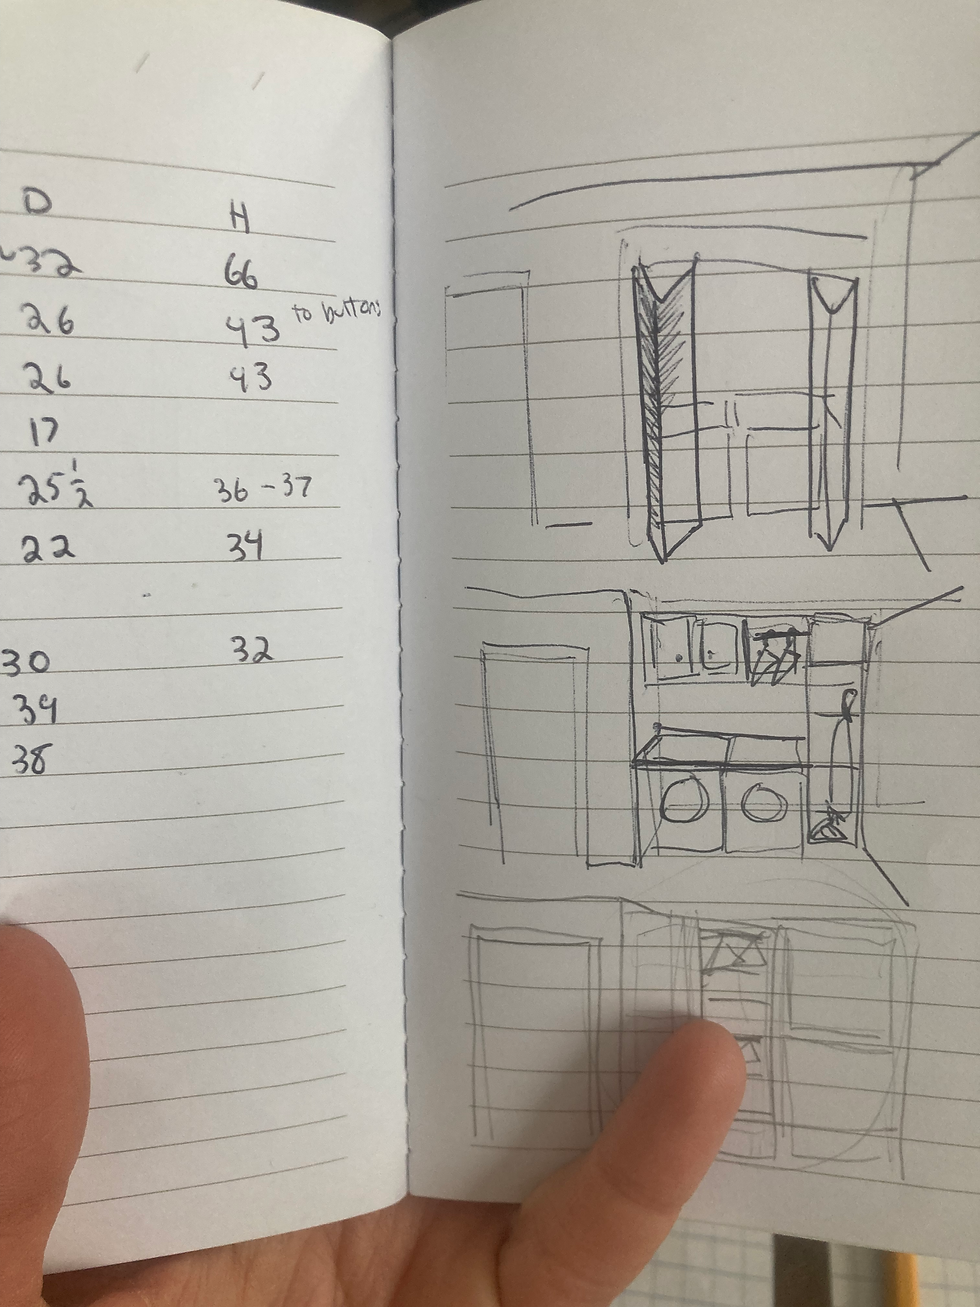 D H
~32 66
26 43 to buttons
26 43
17
25 1/2 36-37
22 34
30 32
39
38